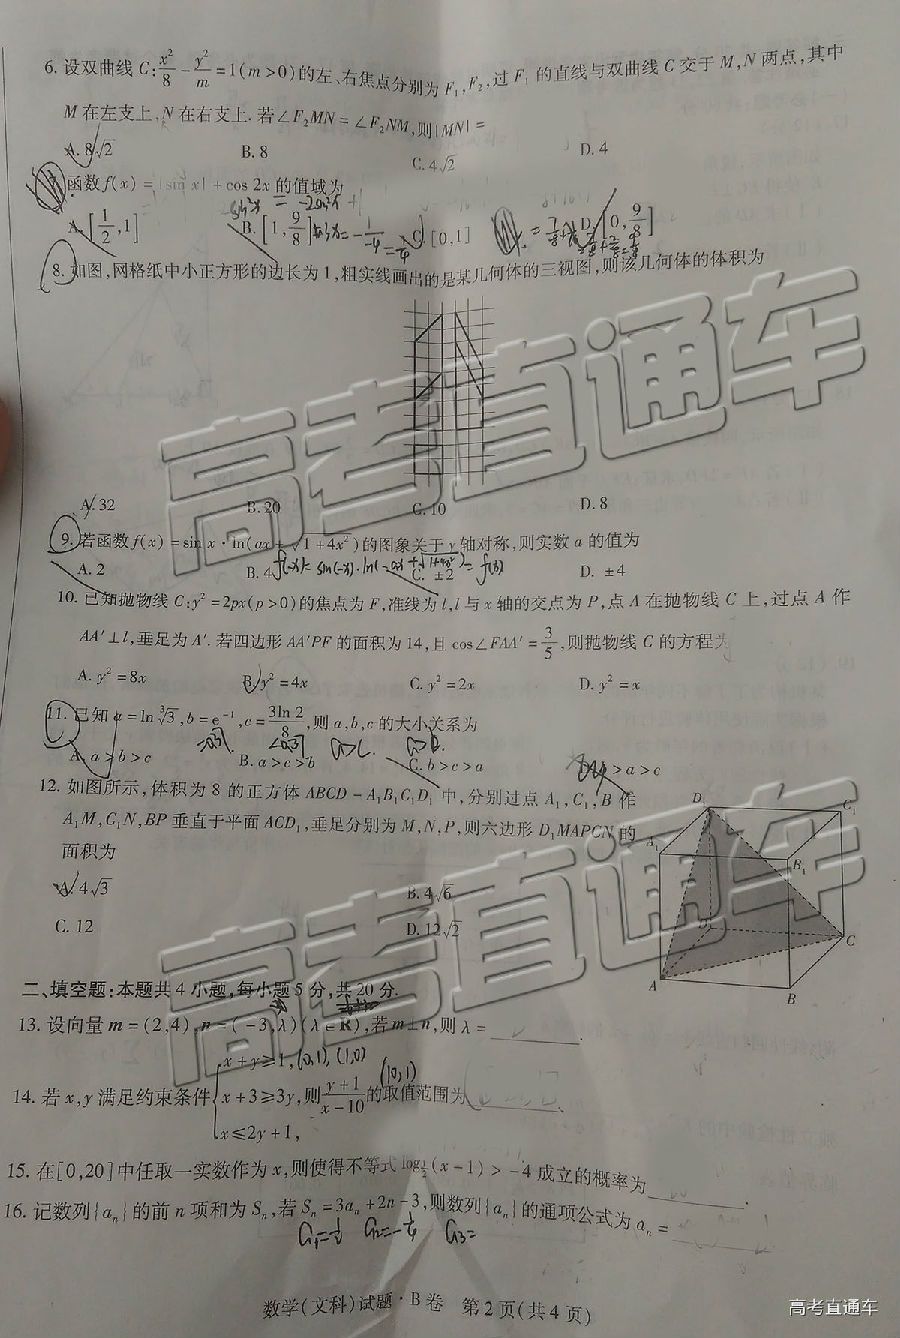 6. 设双曲线 C: x²/8 - y²/m = 1(m>0)的左、右焦点分别为 F₁,F₂,过 F₁ 的直线与双曲线 C 交于 M,N 两点,其中
M 在左支上,N 在右支上. 若∠F₂MN = ∠F₂NM,则|MN| =
A. 8√2 B. 8 C. 4√2 D. 4
函数 f(x) = |sin x| + cos 2x 的值域为
A. [1/2,1] B. [1,9/8] C. [0,1] D. [0,9/8]
8. 如图,网格纸中小正方形的边长为 1,粗实线画出的是某几何体的三视图,则该几何体的体积为
A. 32 B. 20 C. 10 D. 8
9. 若函数 f(x) = sin x · ln(ax + √(1+4x²))的图象关于 y 轴对称,则实数 a 的值为
A. 2 B. 4 C. ±2 D. ±4
10. 已知抛物线 C: y² = 2px(p>0)的焦点为 F,准线为 l,l 与 x 轴的交点为 P,点 A 在抛物线 C 上,过点 A 作
AA'⊥l,垂足为 A'. 若四边形 AA'PF 的面积为 14,且 cos∠FAA' = 3/5,则抛物线 C 的方程为
A. y² = 8x B. y² = 4x C. y² = 2x D. y² = x
11. 已知 a = ln ∛3, b = e⁻¹, c = 3ln 2/8,则 a,b,c 的大小关系为
A. a>b>c B. a>c>b C. b>c>a >a>c
12. 如图所示,体积为 8 的正方体 ABCD-A₁B₁C₁D₁ 中,分别过点 A₁,C₁,B 作
A₁M,C₁N,BP 垂直于平面 ACD₁,垂足分别为 M,N,P,则六边形 D₁MAPCN 的
面积为
A. 4√3 B. 4√6
C. 12 D. 12√2
D₁ C₁
A₁ B₁
D C
A B
二、填空题:本题共 4 小题,每小题 5 分,共 20 分.
13. 设向量 m = (2,4), n = (-3,λ)(λ∈R),若 m⊥n,则 λ = ______.
x+y≥1, (0,1), (1,0)
14. 若 x,y 满足约束条件 x+3≥3y, 则 (y+1)/(x-10) 的取值范围为 ______.
x≤2y+1,
15. 在[0,20]中任取一实数作为 x,则使得不等式 log½(x-1) > -4 成立的概率为______.
16. 记数列{aₙ}的前 n 项和为 Sₙ,若 Sₙ = 3aₙ + 2n - 3,则数列{aₙ}的通项公式为 aₙ = ______.
数学(文科)试题·B卷 第 2 页(共 4 页)
高考直通车
高考直通车
高考直通车